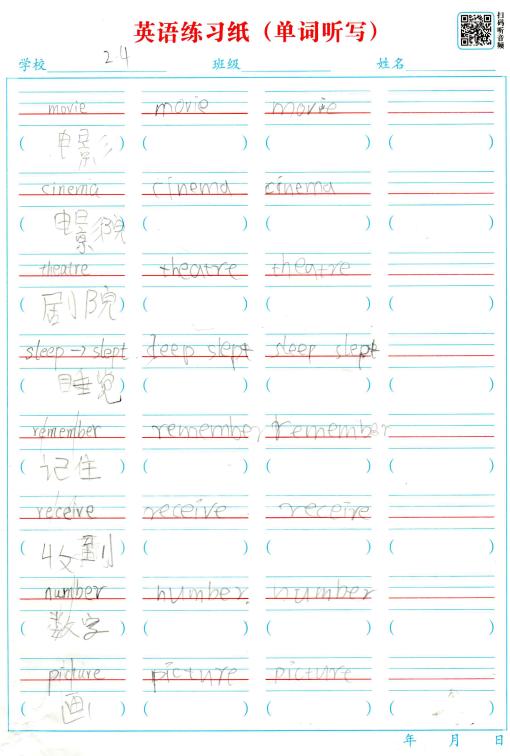 英语练习纸（单词听写）
扫码听音频
学校 24 班级 姓名
movie movie movie
( 电影 ) ( ) ( ) ( )
cinema cinema cinema
( 电影院 ) ( ) ( ) ( )
theatre theatre theatre
( 剧院 ) ( ) ( ) ( )
sleep→slept sleep slept sleep slept
( 睡觉 ) ( ) ( ) ( )
remember remember remember
( 记住 ) ( ) ( ) ( )
receive receive receive
( 收到 ) ( ) ( ) ( )
number number number
( 数字 ) ( ) ( ) ( )
picture picture picture
( 画 ) ( ) ( ) ( )
年 月 日